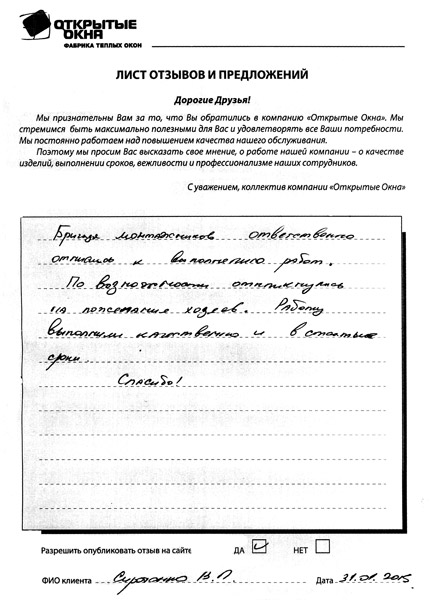 ОТКРЫТЫЕ
ОКНА
ФАБРИКА ТЕПЛЫХ ОКОН
ЛИСТ ОТЗЫВОВ И ПРЕДЛОЖЕНИЙ
Дорогие Друзья!
Мы признательны Вам за то, что Вы обратились в компанию «Открытые Окна». Мы
стремимся быть максимально полезными для Вас и удовлетворять все Ваши потребности.
Мы постоянно работаем над повышением качества нашего обслуживания.
Поэтому мы просим Вас высказать свое мнение, о работе нашей компании – о качестве
изделий, выполнении сроков, вежливости и профессионализме наших сотрудников.
С уважением, коллектив компании «Открытые Окна»
Бригада монтажников ответственно
отнеслись к выполнению работ.
По возможности откликнулись
на пожелание хозяев. Работы
выполнили качественно и в сжатые
сроки.
Спасибо!
Разрешить опубликовать отзыв на сайте ДА НЕТ
ФИО клиента В. П. Дата 31.01.2015